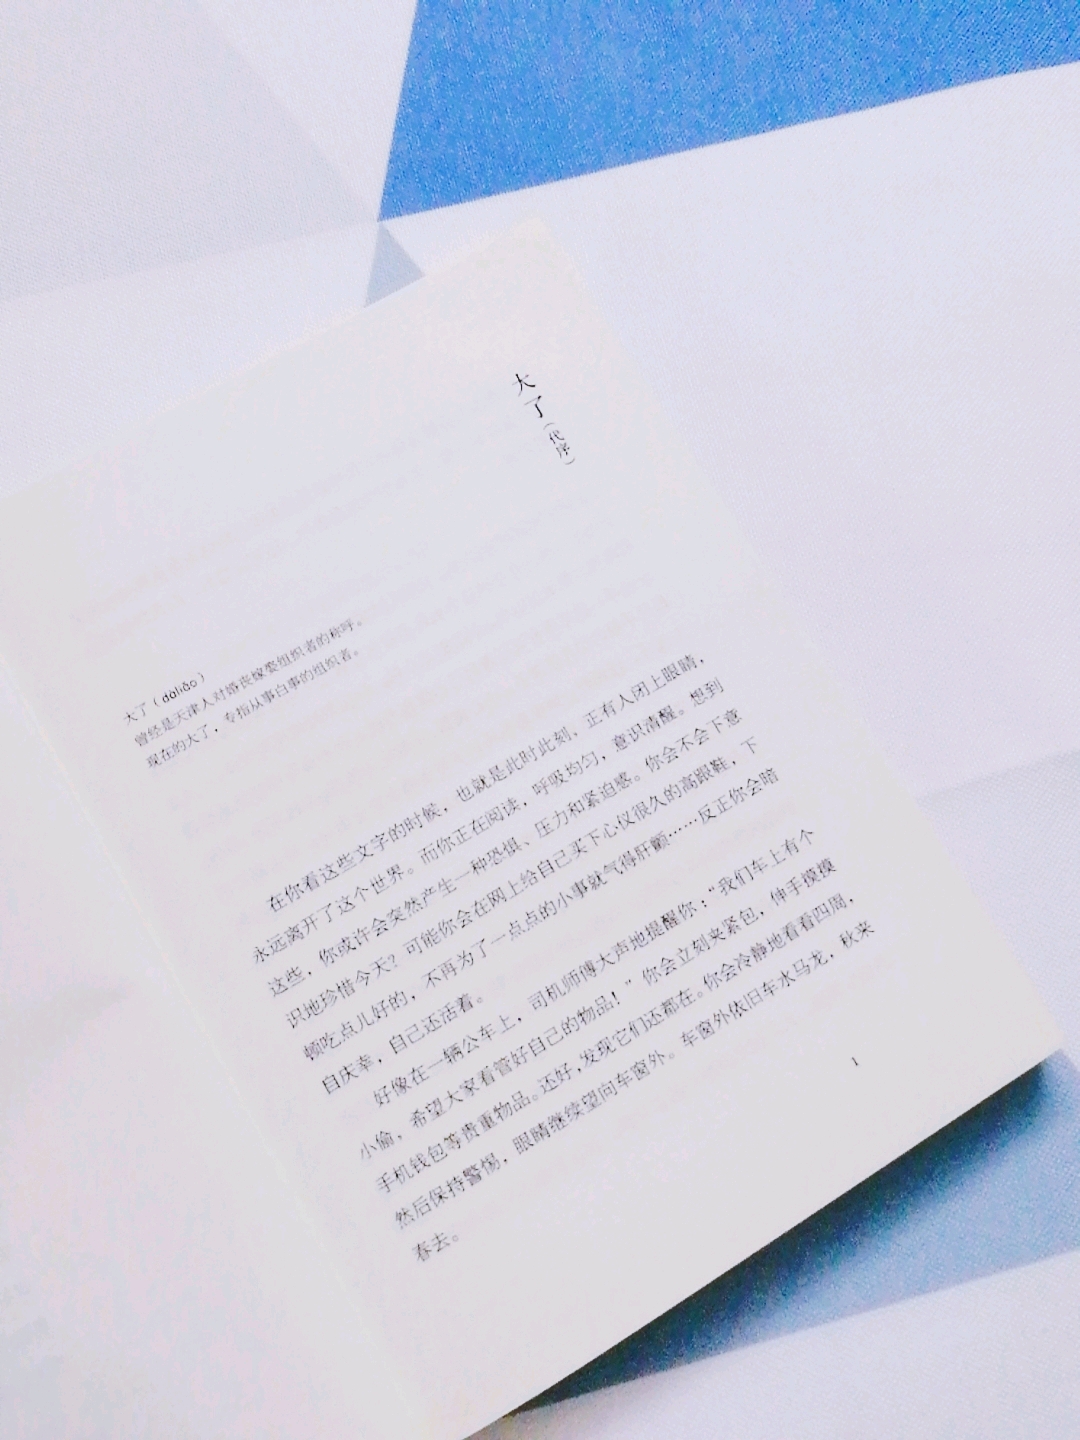 大了（代序）
大了（dàliǎo）
曾经是天津人对婚丧嫁娶组织者的称呼。
现在的大了，专指从事白事的组织者。
在你看这些文字的时候，也就是此时此刻，正有人闭上眼睛，
永远离开了这个世界。而你正在阅读，呼吸均匀，意识清醒。想到
这些，你或许会突然产生一种恐惧、压力和紧迫感。你会不会下意
识地珍惜今天？可能你会在网上给自己买下心仪很久的高跟鞋，下
顿吃点儿好的，不再为了一点点的小事就气得肝颤……反正你会暗
自庆幸，自己还活着。
好像在一辆公车上，司机师傅大声地提醒你：“我们车上有个
小偷，希望大家看管好自己的物品！”你会立刻夹紧包，伸手摸摸
手机钱包等贵重物品。还好，发现它们还都在。你会冷静地看看四周，
然后保持警惕，眼睛继续望向车窗外。车窗外依旧车水马龙，秋来
春去。
1